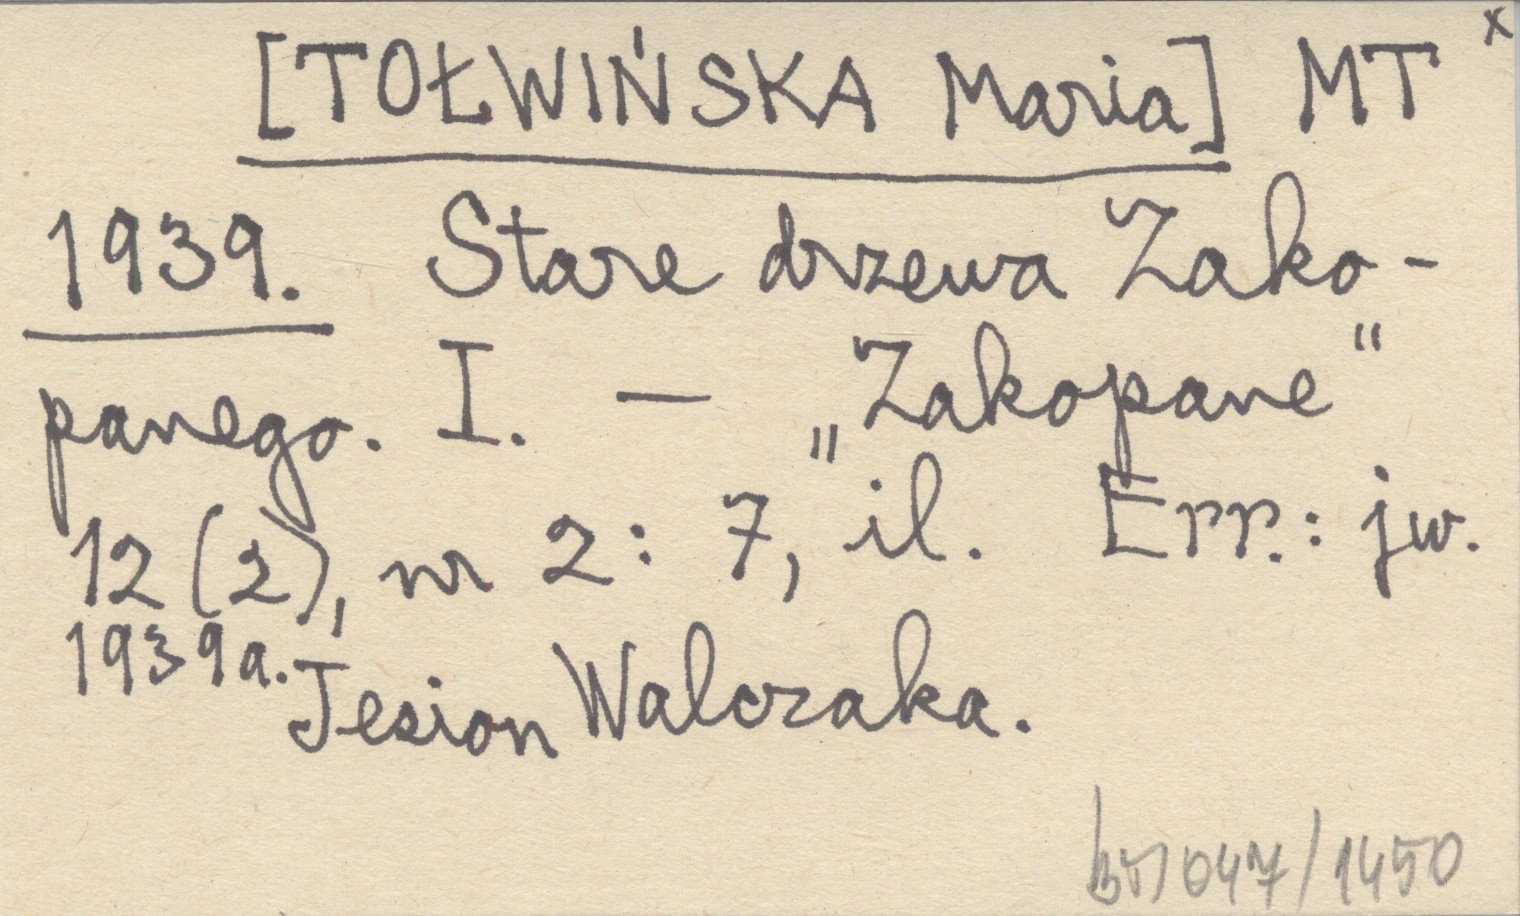 [TOŁWIŃSKA Maria] MT x
1939. Stare drzewa Zako-
panego. I. — „Zakopane“
12 (2), nr 2: 7, il. Err.: jw.
1939a. Jesion Walczaka.
047/1450